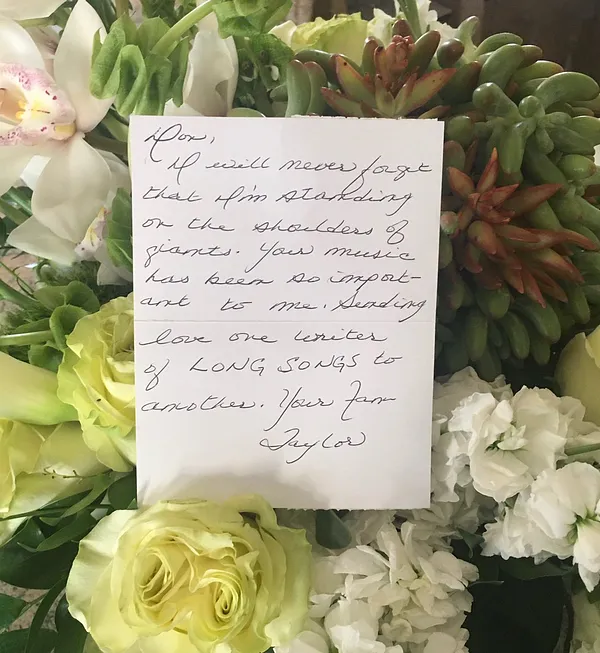 Don,
I will never forget
that I'm standing
on the shoulders of
giants. Your music
has been so import-
ant to me. Sending
love one writer
of LONG SONGS to
another. Your fan
Taylor